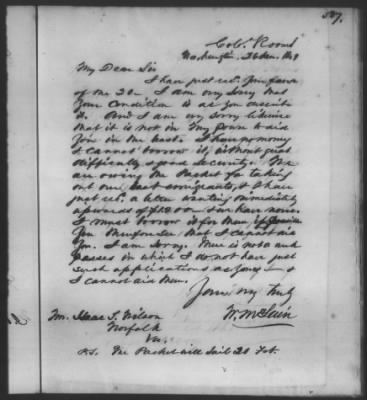 Col. Rooms
Washington, 26 Jan. 1849
My Dear Sir
I have just recd. your favor
of the 20. I am very sorry that
your condition is as you describe
it. And I am very sorry likewise
that it is not in my power to aid
you in the least. I have no money
I cannot borrow it, without great
difficulty & good security. We
are owing the Packet for taking
out our last emigrants, & I have
just recd. a letter wanting immediately
upwards of & we have none.
I must borrow it for them, if I can
You therefore see that I cannot aid
you. I am sorry. There is not a week
passes in which I do not have just
such applications as yours, & 
I cannot aid them.
Yours very truly
W. McLain
Mr. Isaac S. Wilson
Norfolk
Va.
P.S. The Packet will Sail 20 Feb.